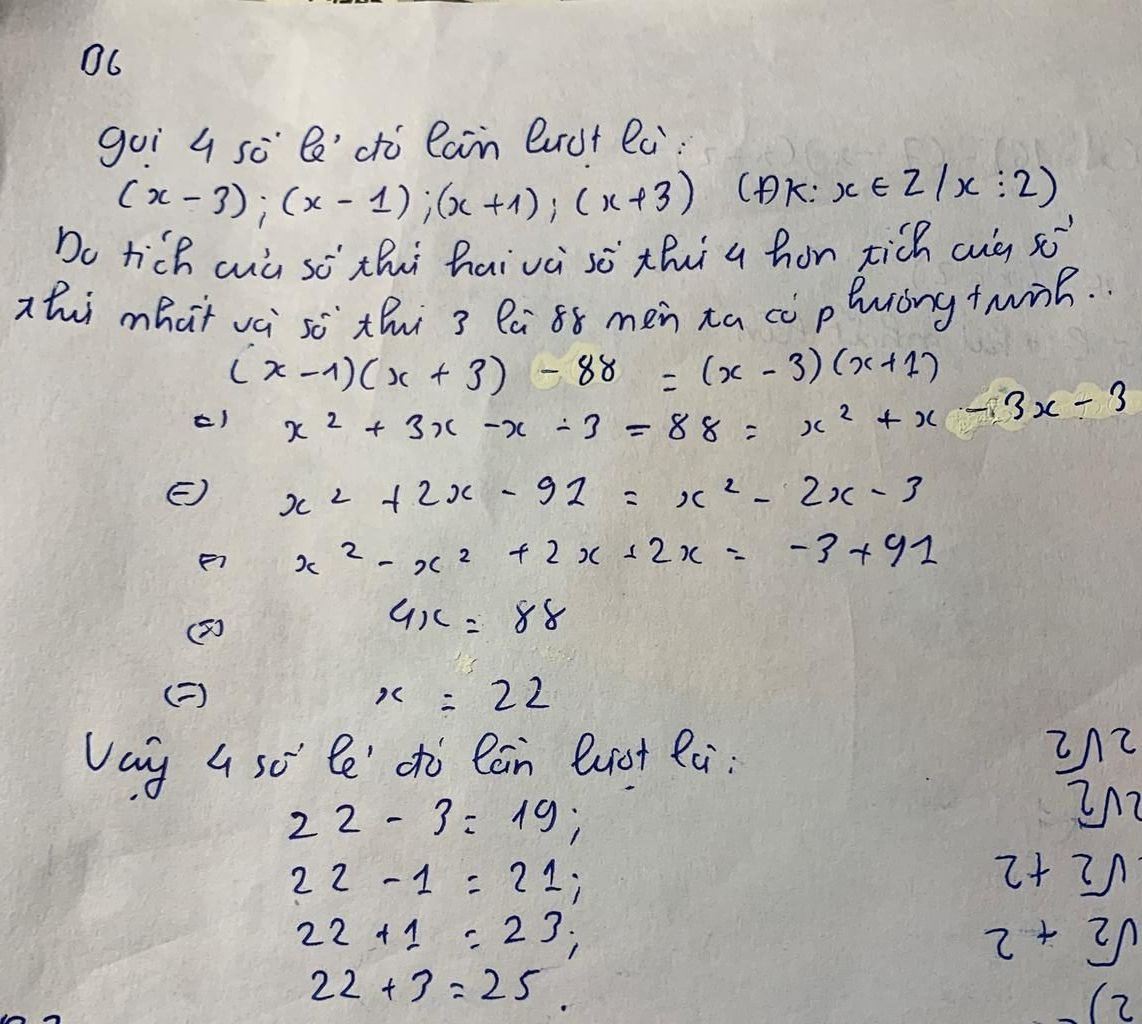 B6
Gọi 4 số lẻ đó lần lượt là:
(x - 3); (x - 1); (x + 1); (x + 3) (ĐK: x ∈ Z / x ⋮ 2)
Do tích của số thứ hai và số thứ 4 hơn tích của số
thứ nhất và số thứ 3 là 88 nên ta có phương trình:
(x - 1)(x + 3) - 88 = (x - 3)(x + 1)
(=) x² + 3x - x - 3 - 88 = x² + x - 3x - 3
(=) x² + 2x - 91 = x² - 2x - 3
(=) x² - x² + 2x + 2x = -3 + 91
(=) 4x = 88
(=) x = 22
Vậy 4 số lẻ đó lần lượt là:
22 - 3 = 19;
22 - 1 = 21;
22 + 1 = 23;
22 + 3 = 25.
2√2
2√2
√2 + 2
√2 + 2